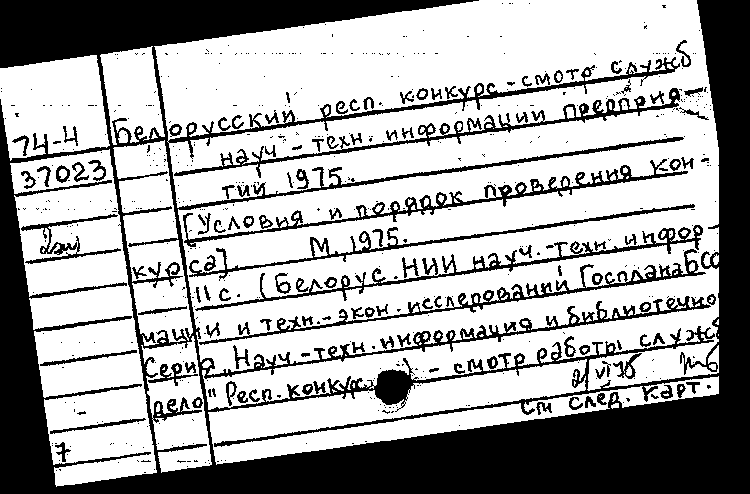 74-4 Белорусский респ. конкурс-смотр служб
37023 науч.-техн. информации предприя-
тий 1975.
[Условия и порядок проведения кон-
2 экз
курса] М., 1975.
11 с. (Белорус. НИИ науч.-техн. инфор-
мации и техн.-экон. исследований Госплана БСС
Серия "Науч.-техн. информация и библиотечно
дело" Респ. конкурс - смотр работы служб
2/VI 75
См след. карт.
7